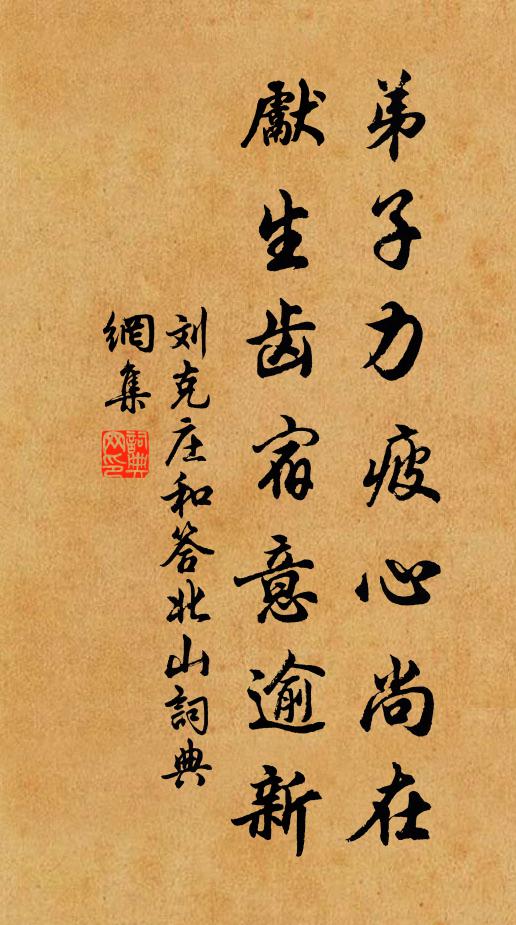 弟子力疲心尚在
獻生齿宿意逾新
刘克庄和答北山詞典
網集
詞典网印